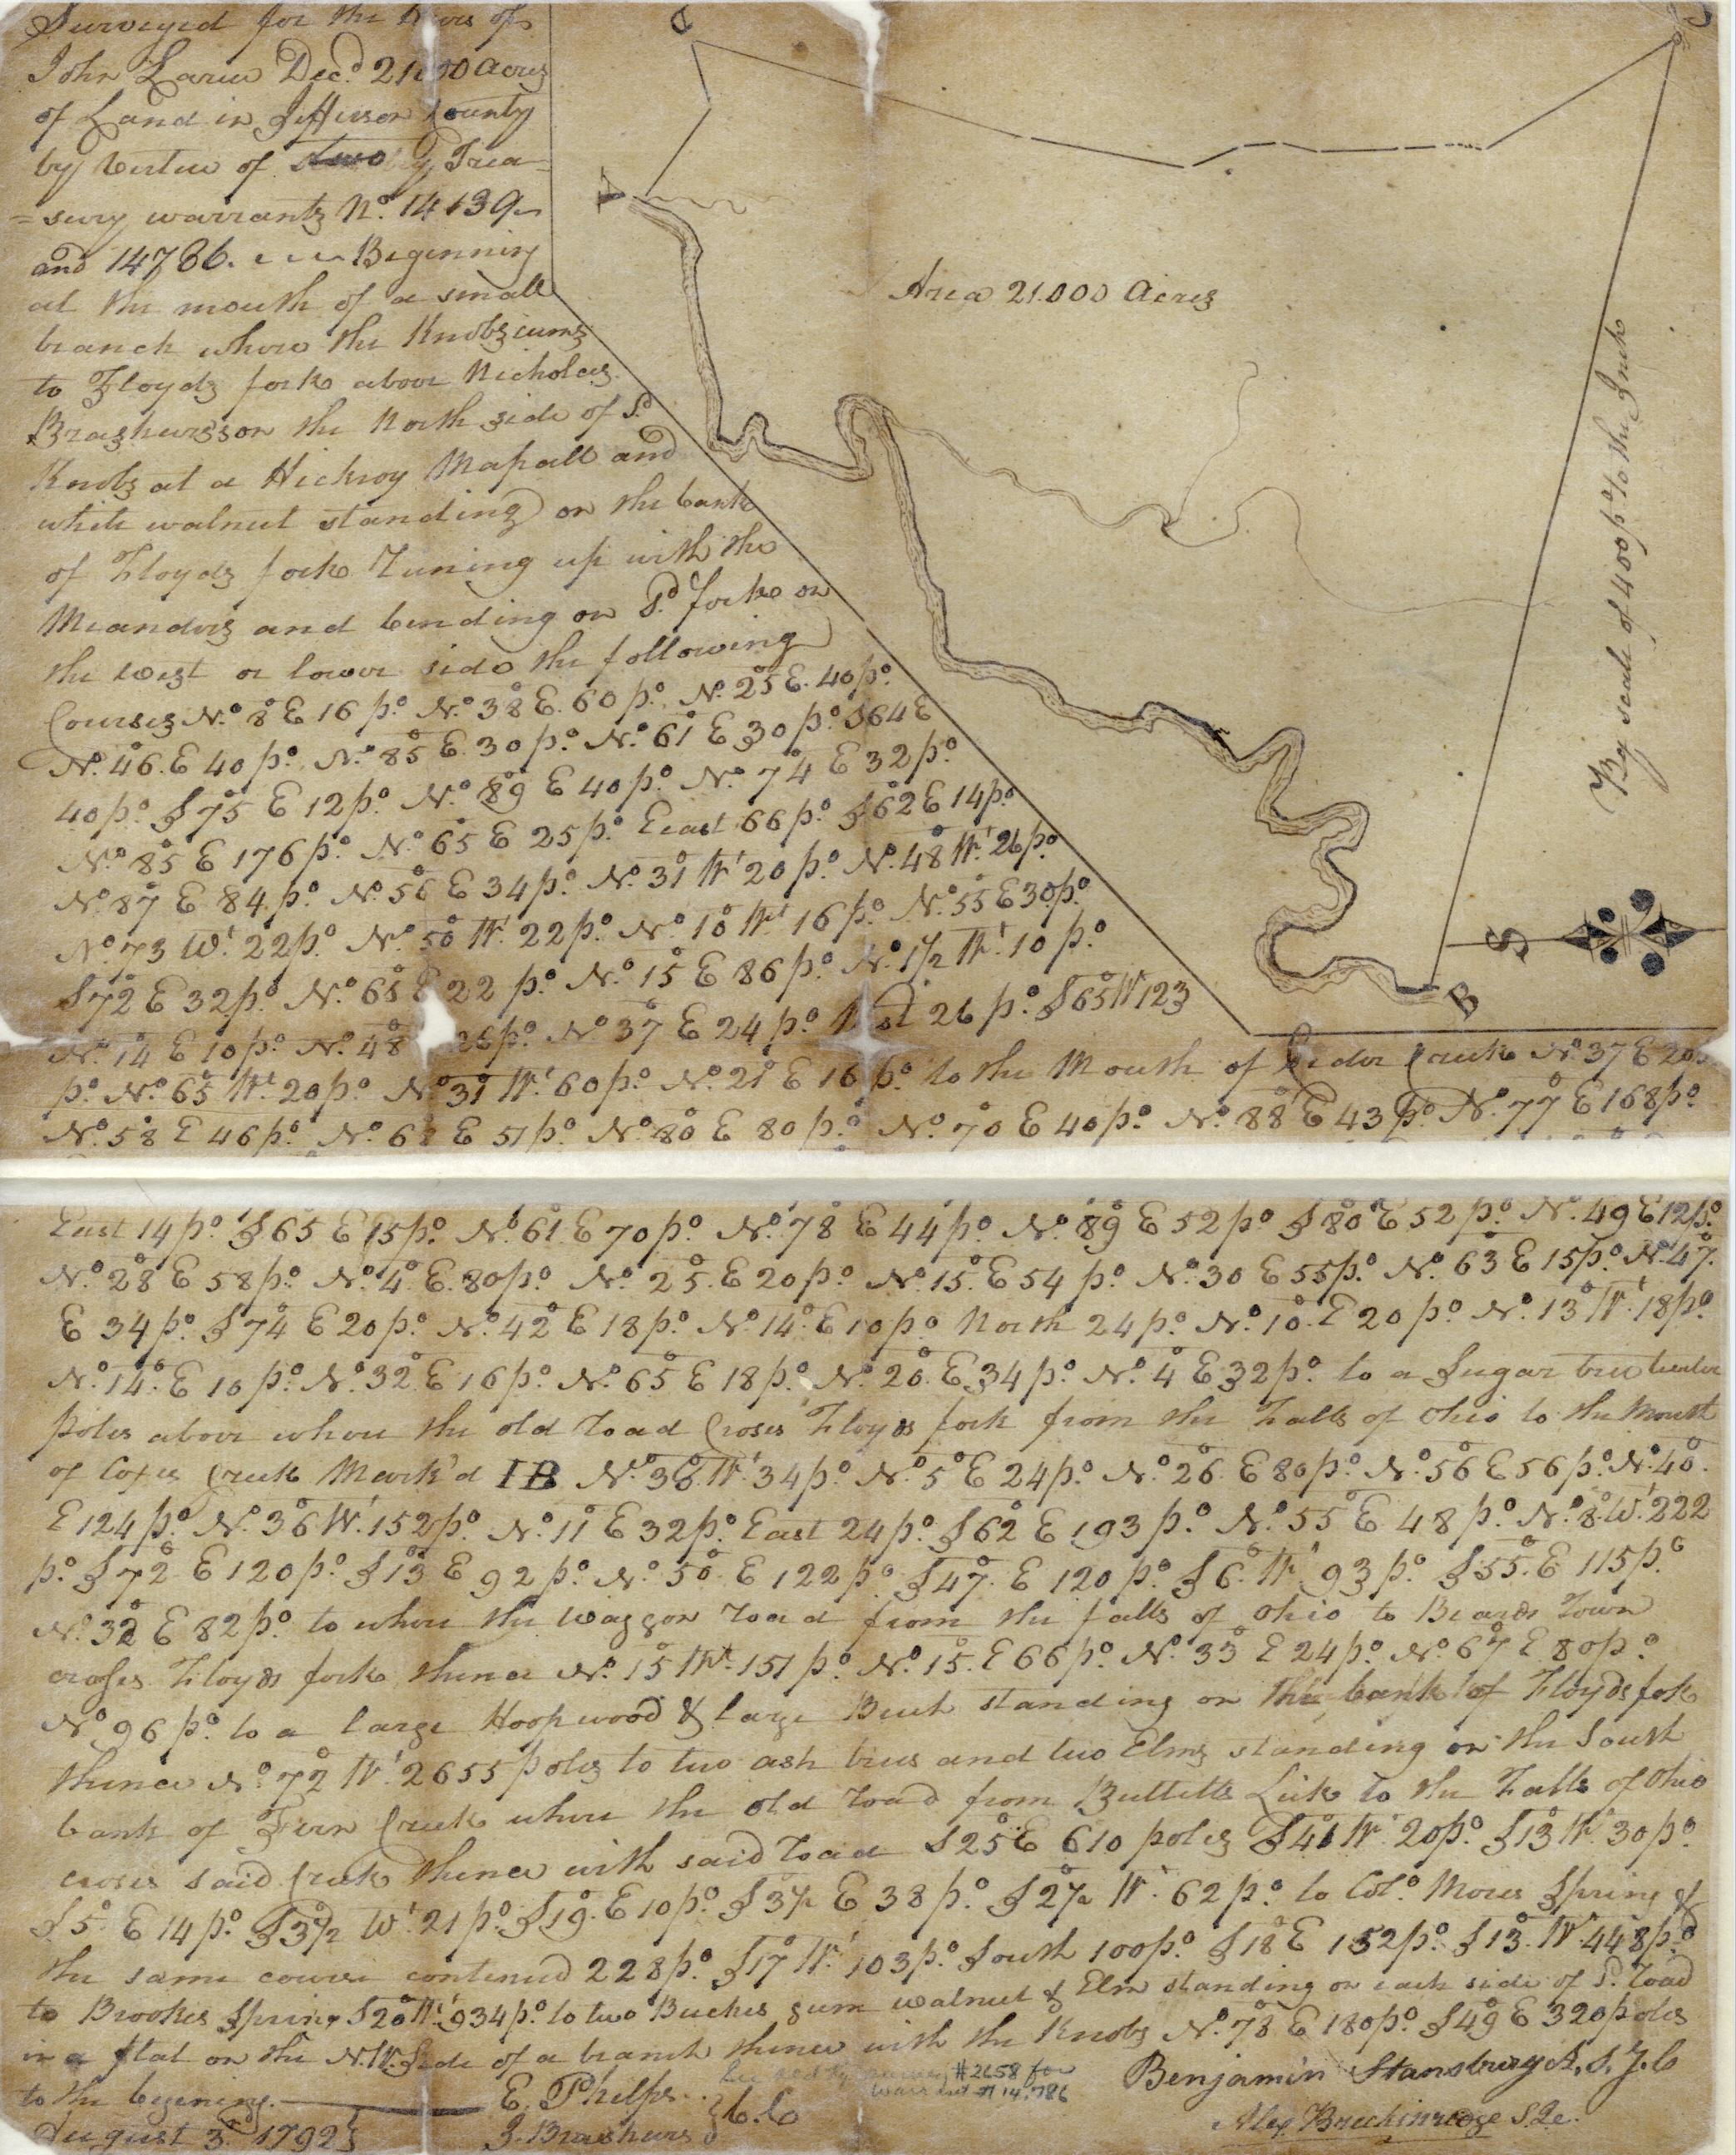 Surveyed for the Heirs of
John Larue Decd. 21000 Acres
of Land in Jefferson County
by Vertue of two Trea=
=sury warrants No. 14139
and 14786. Beginning
at the mouth of a small
branch where the Knobs cums
to Floyds fork above Nicholas
Brashurs's on the North side of Sd
Knobs at a Hickroy Mapall and
white walnut standing on the bank
of Floyds fork Runing up with the
Meanders and bending on Sd. forke on
the west or lower side the following
Courses No. 8 E 16 po. No. 38 E. 60 po. No. 25 E. 40 po.
No. 46. E 40 po. No. 85 E. 30 po. No. 61 E 30 po. S 64 E
40 po. S 75 E 12 po. No. 89 E 40 po. No. 74 E 32 po.
No. 85 E 176 po. No. 65 E 25 po. East 66 po. S 62 E 14 po.
No. 87 E 84 po. No. 56 E 34 po. No. 31 Wt. 20 po. No. 48 Wt. 26 po.
No. 73 Wt. 22 po. No. 50 Wt. 22 po. No. 10 Wt. 16 po. No. 55 E 30 po.
S 72 E 32 po. No. 65 E 22 po. No. 15 E 86 po. No. 1/2 Wt. 10 po.
No. 14 E 10 po. No. 48 26 po. No. 37 E 24 po. 26 po. S 65 W 123
po. No. 65 Wt. 20 po. No. 31 Wt. 60 po. No. 21 E 16 po. to the Mouth of Seder Creek No. 37 E 20
No. 58 E 46 po. No. 6 E 51 po. No. 80 E 80 po. No. 70 E 40 po. No. 88 E 43 po. No. 77 E 168 po.
C
A
Area 21.000 Acres
By scale of 400 po. to the Inch
S
B
East 14 po. S 65 E 15 po. No. 61. E 70 po. No. 78 E 44 po. No. 89 E 52 po S 80 E 52 po. No. 49 E 12 po.
No. 28 E 58 po. No. 4. E. 80 po. No. 25. E 20 po. No. 15. E 54 po. No. 30 E 55 po. No. 63 E 15 po. No. 47.
E 34 po. S 74 E 20 po. No. 42 E 18 po. No. 14. E 10 po. North 24 po. No. 10. E 20 po. No. 13 Wt. 18 po.
No. 14. E 10 po. No. 32 E 16 po. No. 65 E 18 po. No. 20. E 34 po. No. 4 E 32 po. to a Sugar tree
poles above where the old road Croses Floyds fork from the Falls of Ohio to the Mouth
of Coxes Creek Mark'd IB No. 36 Wt. 34 po. No. 5 E 24 po. No. 26. E 80 po. No. 56 E 56 po. No. 40.
E 124 po. No. 36 W. 152 po. No. 11 E 32 po. East 24 po. S 62 E 193 po. No. 55 E 48 po. No. 8. W. 222
po. S 72 E 120 po. S 13 E 92 po. No. 50. E 122 po. S 47. E 120 po. S 6. Wt. 93 po. S 55. E 115 po.
No. 32 E 82 po. to where the Waggon road from the falls of Ohio to Beards Town
crosses Floyds fork thence No. 15 Wt. 151 po. No. 15. E 66 po. No. 33 E 24 po. No. 67 E 80 po.
No 96 po. to a large Hoopwood & large Beech standing on the bank of Floyds fork
thence No. 72 Wt. 2655 poles to two ash trees and two Elms standing on the South
bank of Fern Creek where the old road from Bullitts Lick to the Falls of Ohio
croses said Creek thence with said road S 25 E 610 poles S 41 Wt. 20 po. S 13 Wt. 30 po.
S 5. E 14 po. S 3 1/2 W. 21 po. S 19. E 10 po. S 3 1/2 E 38 po. S 27 1/2 W. 62 po. to Colo. Moses Spring &
the same course contenued 228 po. S 17 Wt. 103 po. South 100 po. S 18 E 152 po. S 13. Wt 448 po.
to Brookes Spring S 20 Wt. 934 po. to two Buches gum walnut & Elm standing on each side of Sd. road
in a flat on the N.W. Side of a branch thence with the Knobs No. 78 E 180 po. S 49 E 320 poles
to the begening.
August 3rd 1792
E. Phelps
J. Brashurs
C.C
#2658 for
Warrant # 14,786
Benjamin Stansbury A. S. J. C
Alex Breckinridge S.